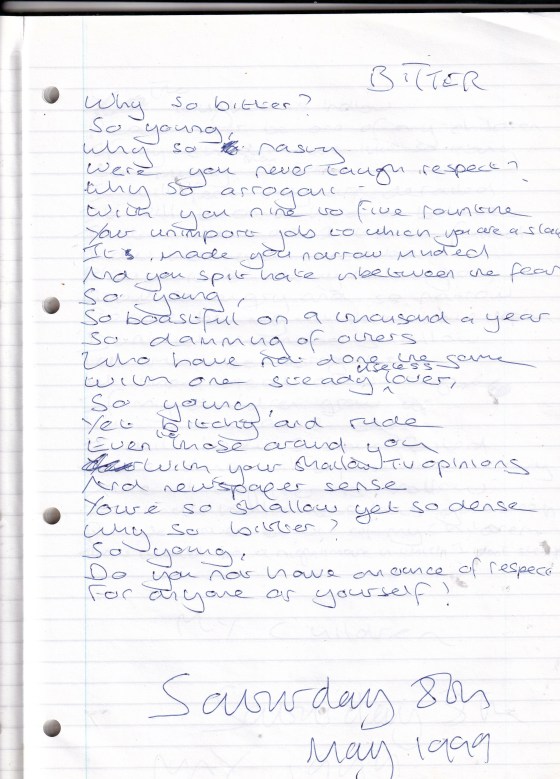 BITTER
Why so bitter?
So young,
Why so nasty
Were you never taugh respect?
Why so arrogant
With you nine to five rountine
Your unimport job to which you are a slav
It's made you narrow minded
And you spit hate inbetween the fear
So young,
So boastful on a thousand a year
So damning of others
Who have not done the same
With one steady useless lover,
So young,
Yet bitchy and rude
Even to those around you
With your shallow TV opinions
And newspaper sense
You're so shallow yet so dense
Why so bitter?
So young,
Do you not have an ounce of respect
For anyone or yourself?
Saturday 8th
May 1999